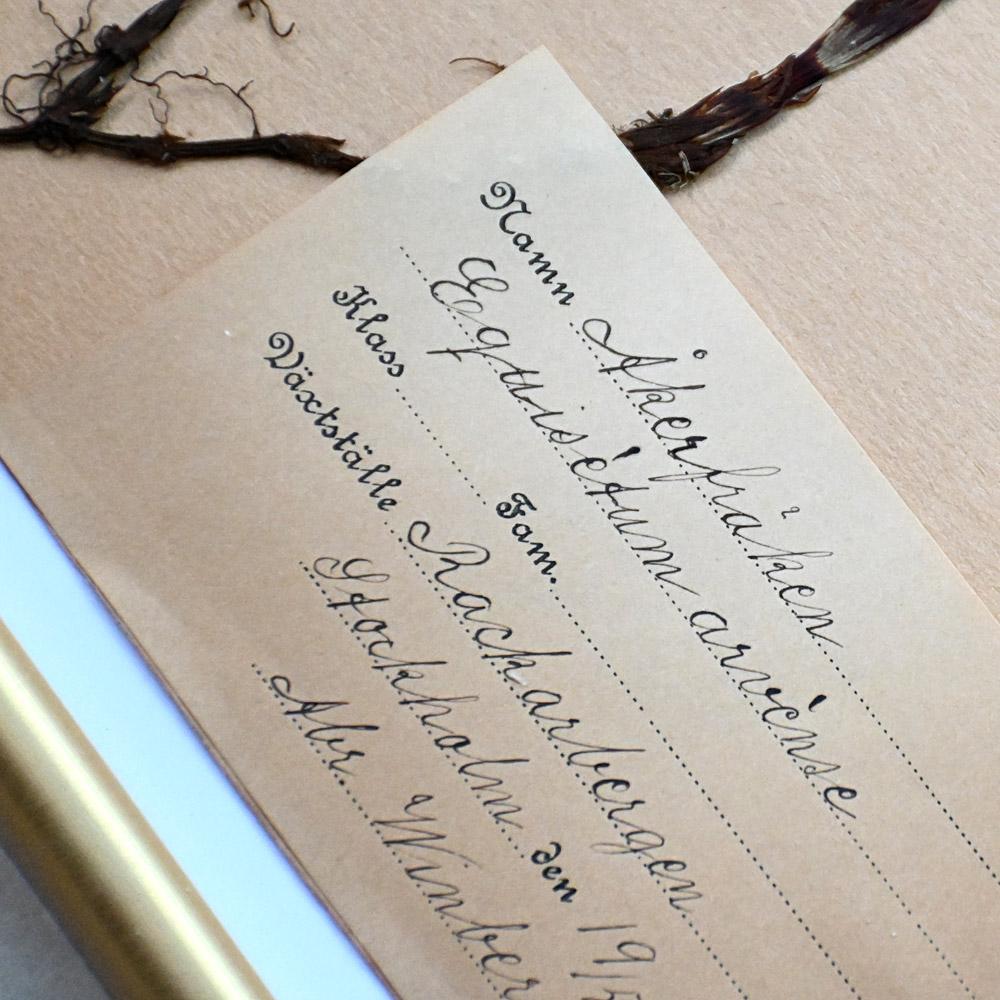 Namn Åkerfräken
Equisétum arvénse
Klass Fam.
Växtställe Rackarbergen
Stockholm den 19/5
Abr. Winber